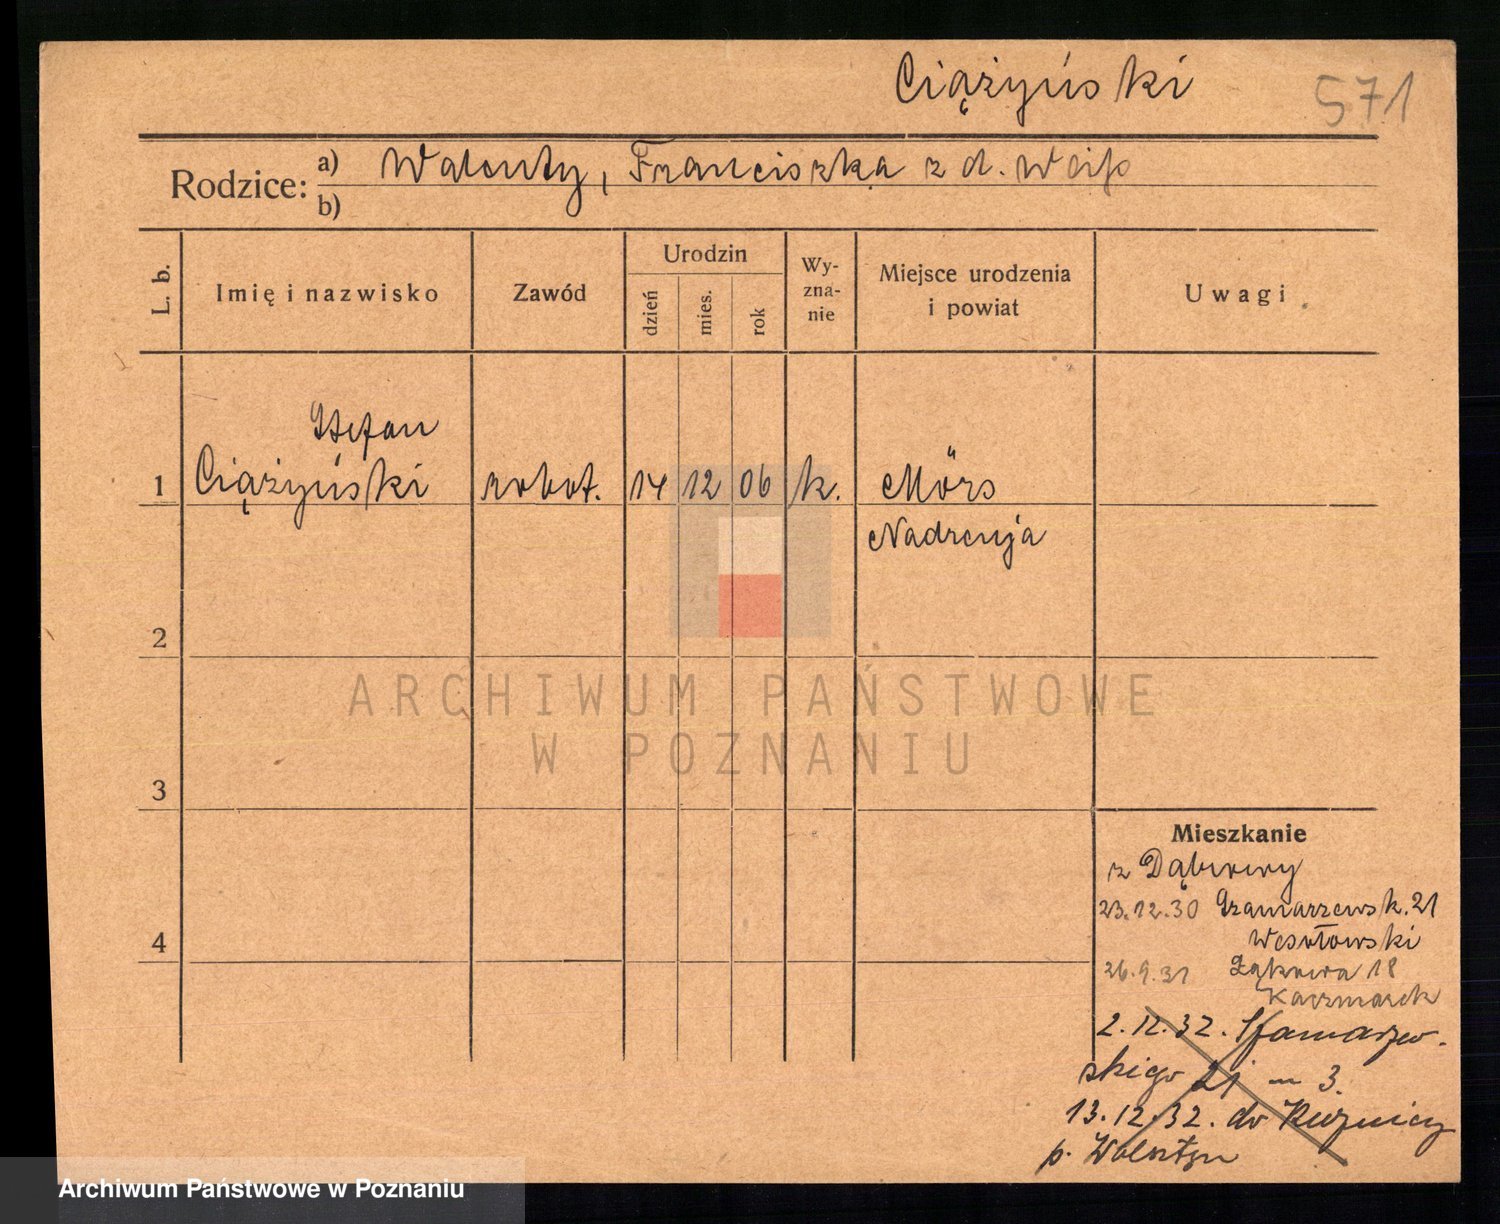 Ciążyński
571
Rodzice: a) Walenty, Franciszka z d. Weiß
b)
L. b.
Imię i nazwisko
Zawód
Urodzin
dzień
mies.
rok
Wy-
zna-
nie
Miejsce urodzenia
i powiat
Uwagi
Stefan
1 Ciążyński robot. 14 12 06 k. Mörs
Nadrenja
2
3
4
ARCHIWUM PAŃSTWOWE
W POZNANIU
Mieszkanie
z Dąbrowy
23.12.30 Szamarzewsk. 21
Wesołowski
26.9.31 Łąkowa 18
Kaczmarek
2.12.32. Szamarzew-
skiego 21 – 3.
13.12.32. do Kuźnicy
p. Wolsztyn
Archiwum Państwowe w Poznaniu